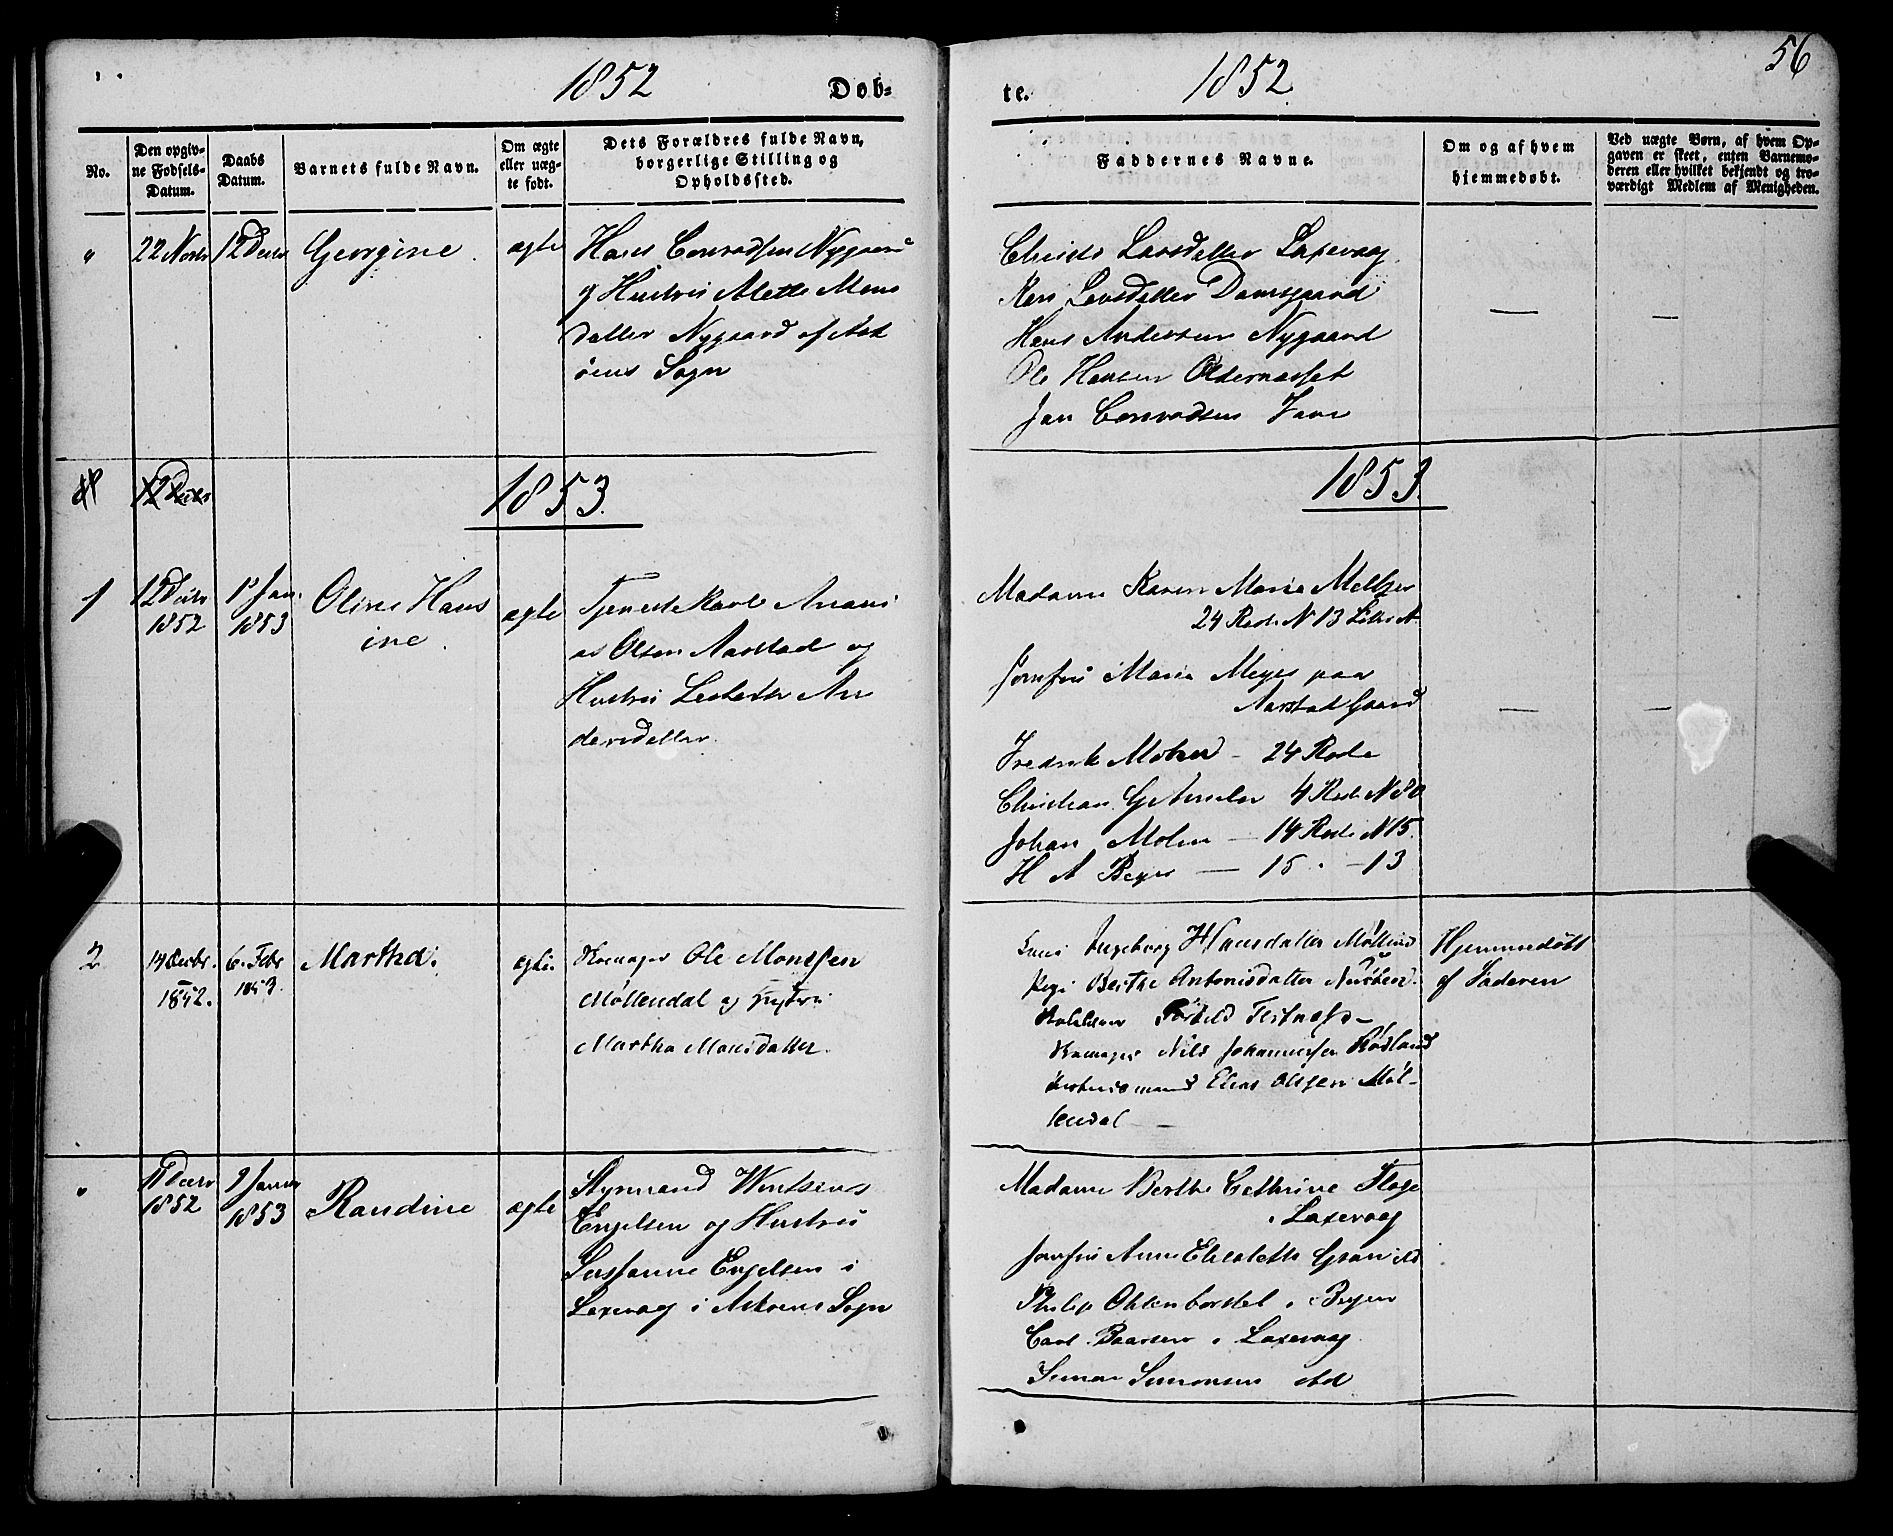 1852 Døb=
te. 1852 56
No.
Den opgiv-
ne Fødsels-
Datum.
Daabs
Datum.
Barnets fulde Navn.
Om ægte
eller uæg-
te født.
Dets Forældres fulde Navn,
borgerlige Stilling og
Opholdssted.
Faddernes Navne.
Om og af hvem
hjemmedøbt.
Ved uægte Børn, af hvem Op-
gaven er skeet, enten Barnemo-
deren eller hvilket bekjendt og tro-
værdigt Medlem af Menigheden.
" 22 Novbr 12 Decbr Georgine. ægte
Hans Conradsen Nygaard
og Hustru Mette Mons
datter Nygaard af Ask
øens Sogn
Larsdatter Laxevaag
Kari Larsdatter Damsgaard
Hans Andersen Nygaard
Ole Hansen
Jan Conradsen
1853.
1853.
1
12 Decbr
1852
1 Jan.
1853
Oline Hans
ine.
ægte
Tjenestekarl Anani
as Olsen Aarstad og
Hustru An
dersdatter.
Madame Karen Maria Meltzer
24 Rode N 13 Litr A.
Jomfru Maria Meyer paa
Aarstad Gaard
Fredrik Mohn - 24 Rode
Christian 4 Rode N 80
Johan Mohn - 14 Rode N 15.
H A Beyer - 15 " - 13
2
14 Decbr.
1852.
6. Febr
1853.
Martha: ægte.
Ole Monssen
Møllendal og Hustru
Martha Monsdatter.
Ingeborg Hansdatter
Pige Berthe Antonisdatter
Nils Johannessen Rødland
Elias Olsen Møl-
lendal -
Hjemmedøbt
af Faderen
"
11 Decbr
1852
9 Januar
1853
Randine ægte
Styrmand
Engelsen og Hustru
Susanne Engelsen i
Laxevaag i Askøens Sogn
Madame Berthe Cathrine
i Laxevaag
Jomfru Anne Elisabeth
Philip Ohlenborstel i Bergen
Carl i Laxevaag
Simon Simonsen ibd